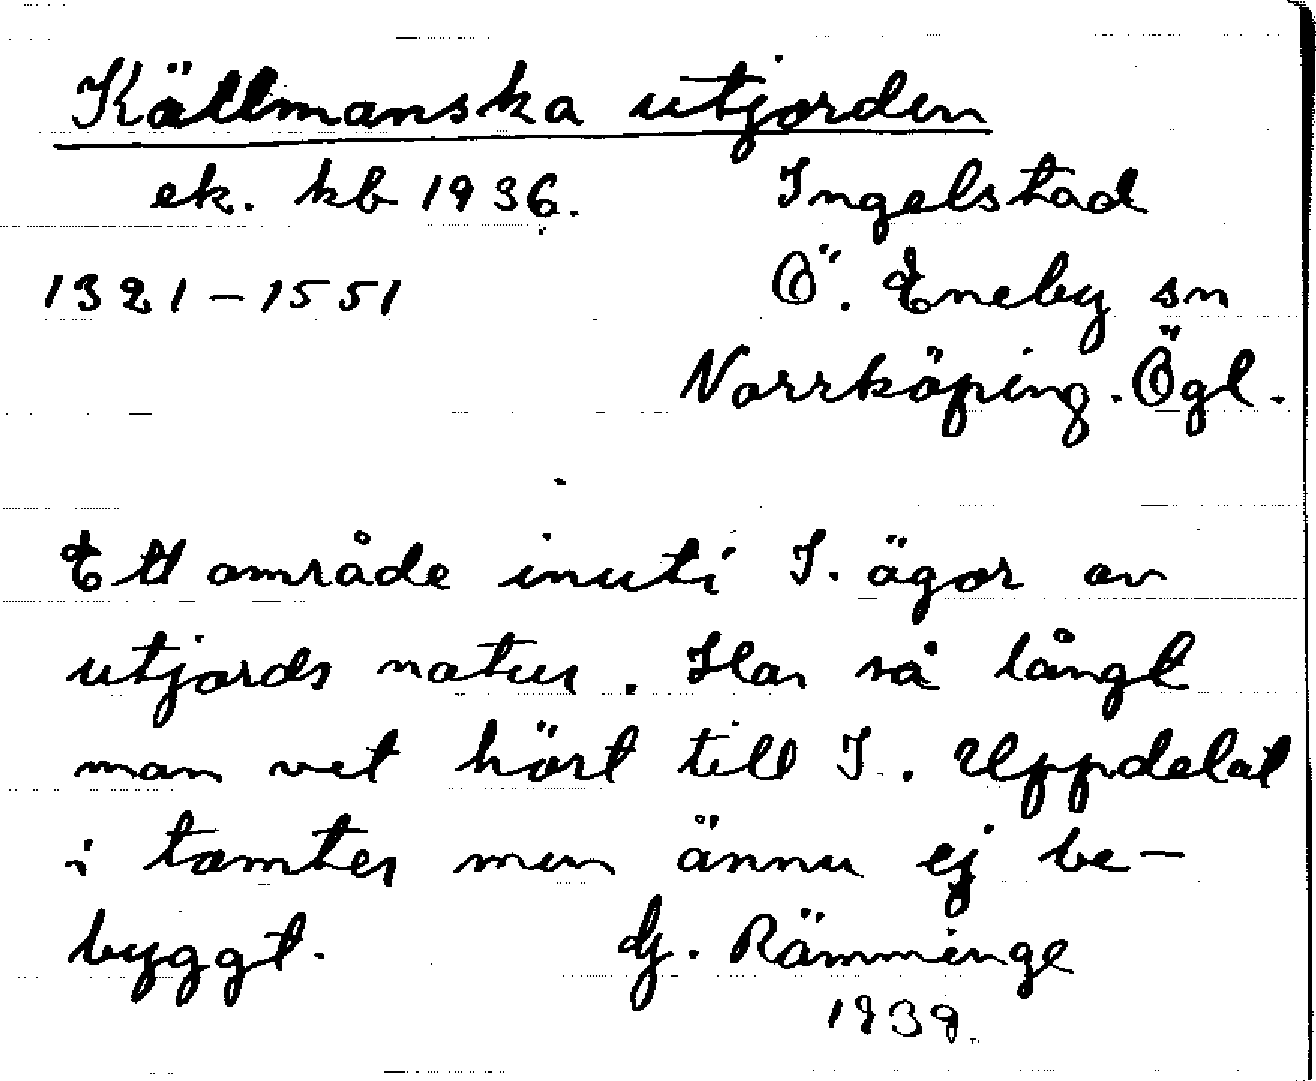 Källmanska utjorden
ek. kb 1936. Ingelstad
1321-1551 Ö. Eneby sn
Norrköping. Ögl.
Ett område inuti I. ägor av
utjords natur. Har så långt
man vet hört till I. Uppdelat
i tomter men ännu ej be-
byggt. G. Rämminge
1939.